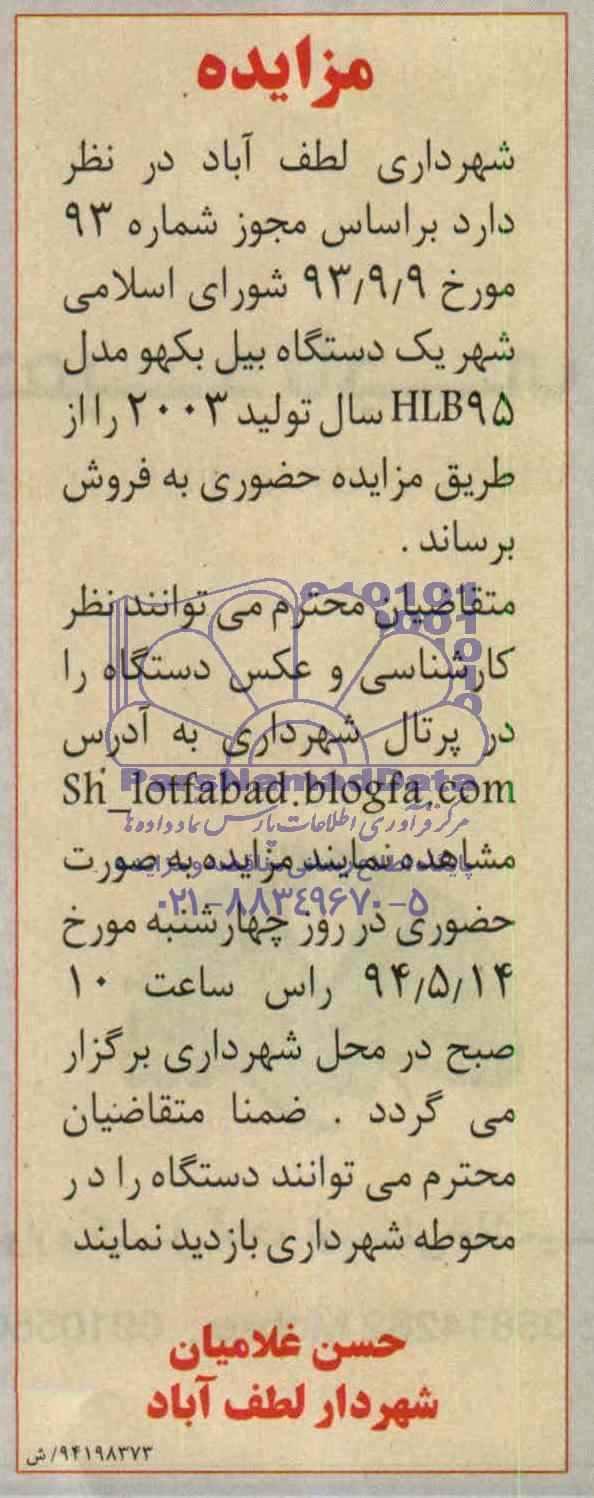 مزایده
شهرداری لطف آباد در نظر
دارد براساس مجوز شماره ۹۳
مورخ ۹۳/۹/۹ شورای اسلامی
شهر یک دستگاه بیل بکهو مدل
HLB۹۵ سال تولید ۲۰۰۳ را از
طریق مزایده حضوری به فروش
برساند .
متقاضیان محترم می توانند نظر
کارشناسی و عکس دستگاه را
در پرتال شهرداری به آدرس
ParsNamadData
Sh_lotfabad.blogfa.com
مرکز فرآوری اطلاعات پارس نماد داده ها
مشاهده نمایند مزایده به صورت
۰۲۱-۸۸۳۴۹۶۷۰-۵
حضوری در روز چهارشنبه مورخ
۹۴/۵/۱۴ راس ساعت ۱۰
صبح در محل شهرداری برگزار
می گردد . ضمنا متقاضیان
محترم می توانند دستگاه را د ر
محوطه شهرداری بازدید نمایند
حسن غلامیان
شهردار لطف آباد
۹۴۱۹۸۳۷۳/ ش